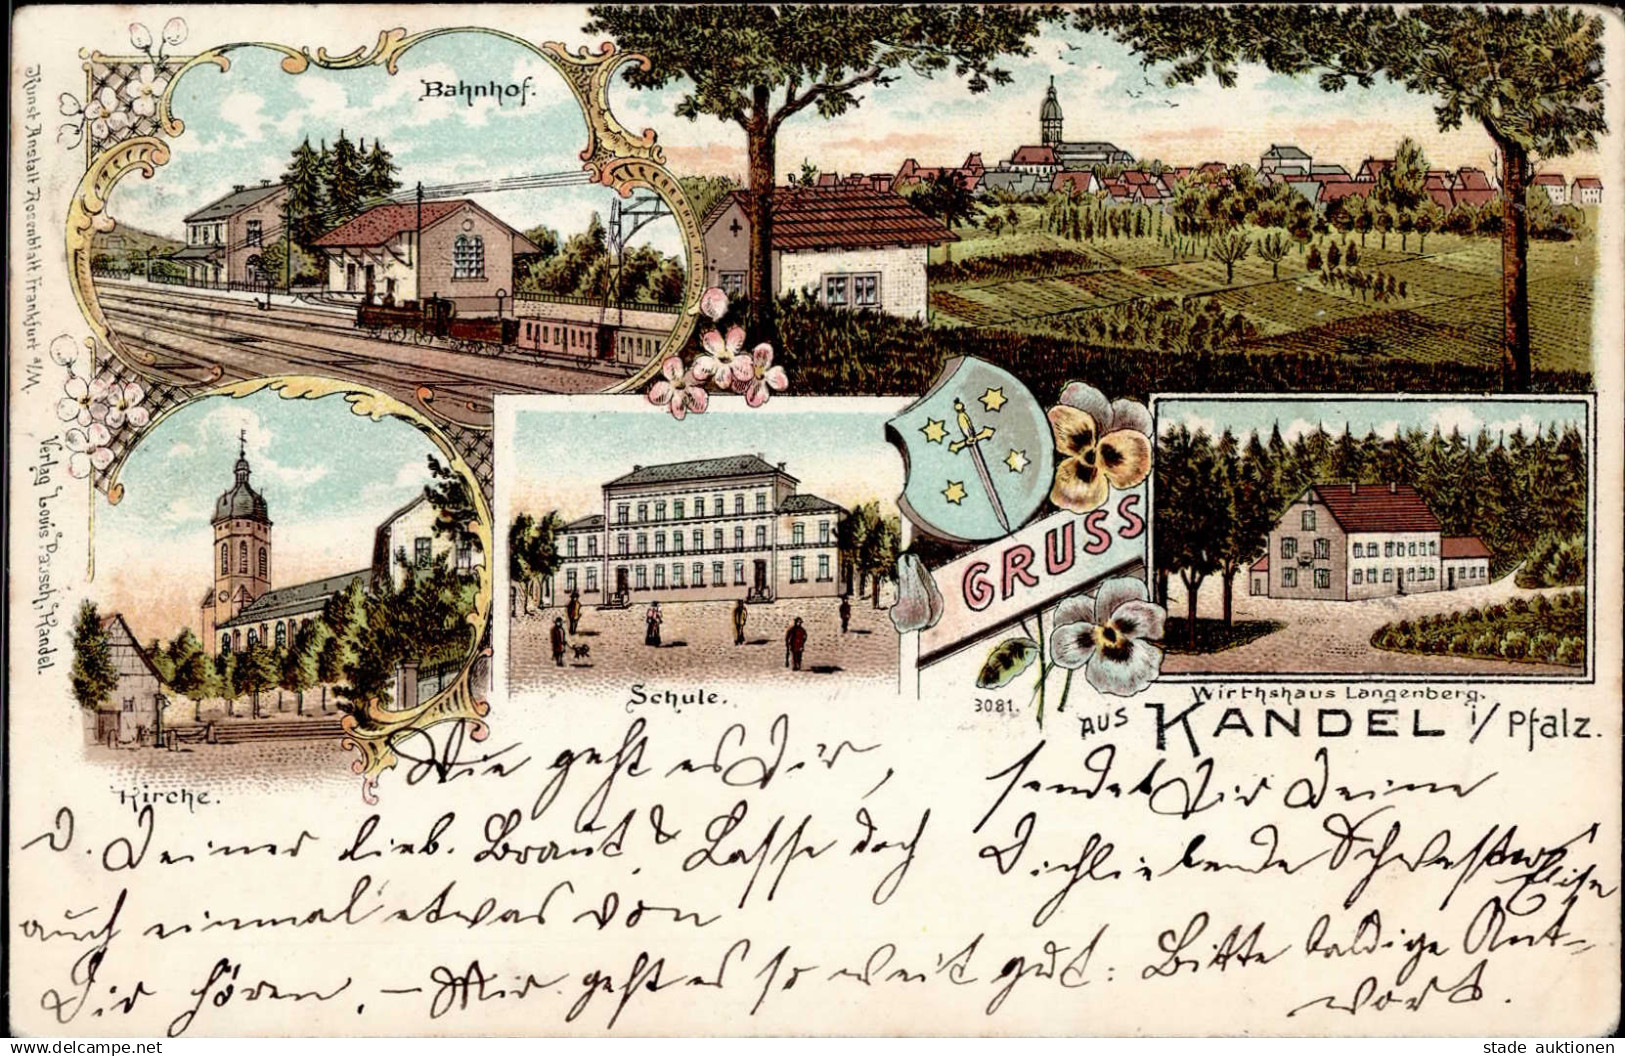 Bahnhof.
Kunst Anstalt Rosenblatt Frankfurt a/M.
Verlag Louis Pausch, Kandel.
Kirche.
Schule.
GRUSS
3081.
Wirthshaus Langenberg.
AUS KANDEL i/Pfalz.
Wie geht es Dir,
d. Deiner lieb. Braut? Lasse doch
auch einmal etwas von
Dir hören. – Mir geht es so weit gut: Bitte baldige Ant-
wort.
sendet Dir Deine
Dichliebende Schwester
Elise
stade auktionen
www.ansichtskartenversand.com